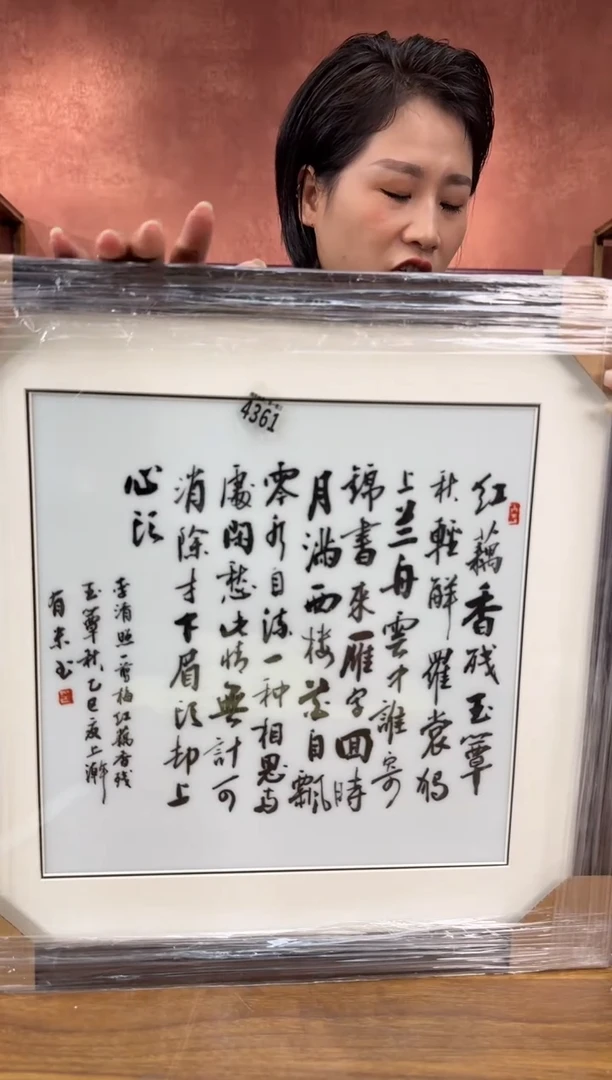 4361
红藕香残玉簟
秋輕解羅裳独
上兰舟雲中誰寄
錦書來雁字回時
月滿西楼花自飄
零水自流一种相思两
處閑愁此情無計可
消除才下眉头却上
心头
李清照一剪梅红藕香残
玉簟秋乙巳夏上澣
有 书